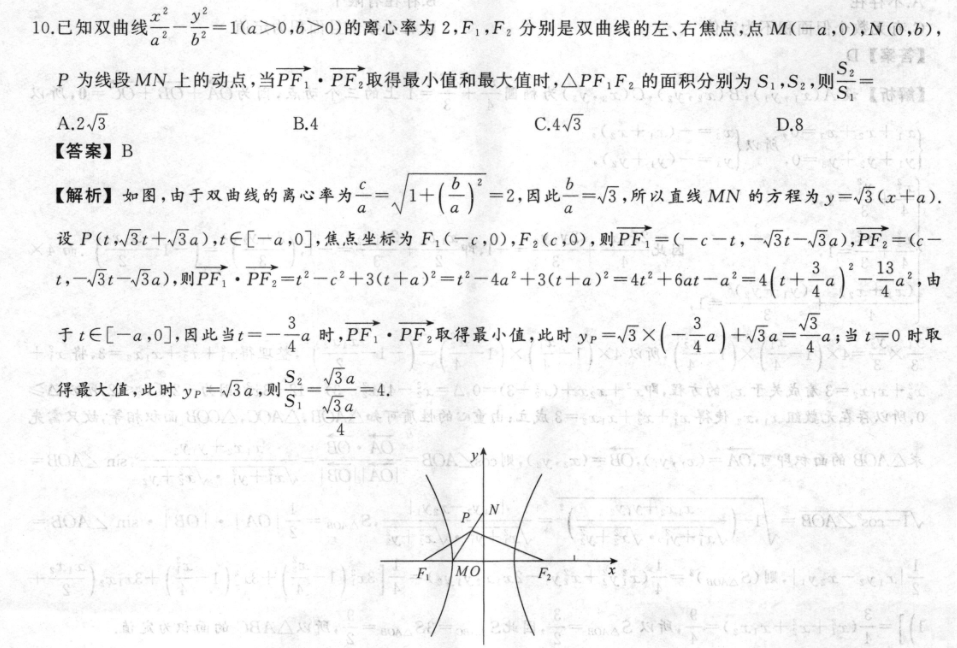 10.已知双曲线x²/a²-y²/b²=1(a>0,b>0)的离心率为2,F₁,F₂分别是双曲线的左、右焦点,点M(-a,0),N(0,b),
P为线段MN上的动点,当PF₁·PF₂取得最小值和最大值时,△PF₁F₂的面积分别为S₁,S₂,则S₂/S₁=
A.2√3 B.4 C.4√3 D.8
【答案】B
【解析】如图,由于双曲线的离心率为c/a=√(1+(b/a)²)=2,因此b/a=√3,所以直线MN的方程为y=√3(x+a).
设P(t,√3t+√3a),t∈[-a,0],焦点坐标为F₁(-c,0),F₂(c,0),则PF₁=(-c-t,-√3t-√3a),PF₂=(c-
t,-√3t-√3a),则PF₁·PF₂=t²-c²+3(t+a)²=t²-4a²+3(t+a)²=4t²+6at-a²=4(t+3/4a)²-13/4a²,由
于t∈[-a,0],因此当t=-3/4a时,PF₁·PF₂取得最小值,此时y_P=√3×(-3/4a)+√3a=√3/4a;当t=0时取
得最大值,此时y_P=√3a,则S₂/S₁=√3a/(√3a/4)=4.
y
P N
F₁ M O F₂ x